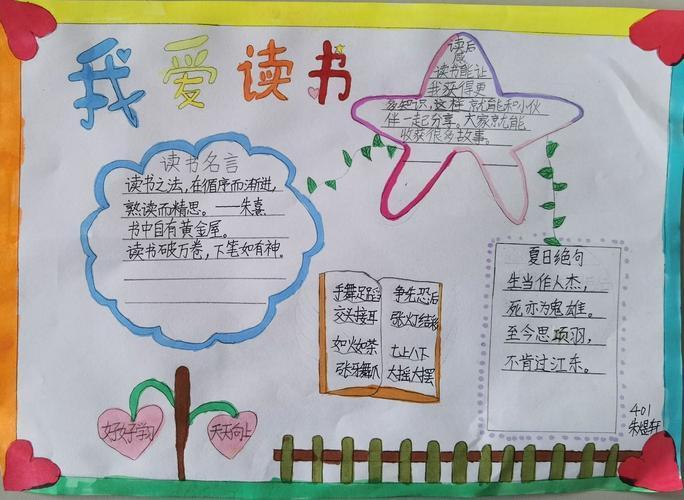 我爱读书
读后
感
读书能让
我获得更
多知识，这样就能和小伙
伴一起分享。大家就能
收获很多故事。
读书名言
读书之法，在循序而渐进，
熟读而精思。——朱熹
书中自有黄金屋。
读书破万卷，下笔如有神。
手舞足蹈
交头接耳
如火如荼
张牙舞爪
争先恐后
张灯结彩
七上八下
大摇大摆
夏日绝句
生当作人杰，
死亦为鬼雄。
至今思项羽，
不肯过江东。
好好学习
天天向上
401